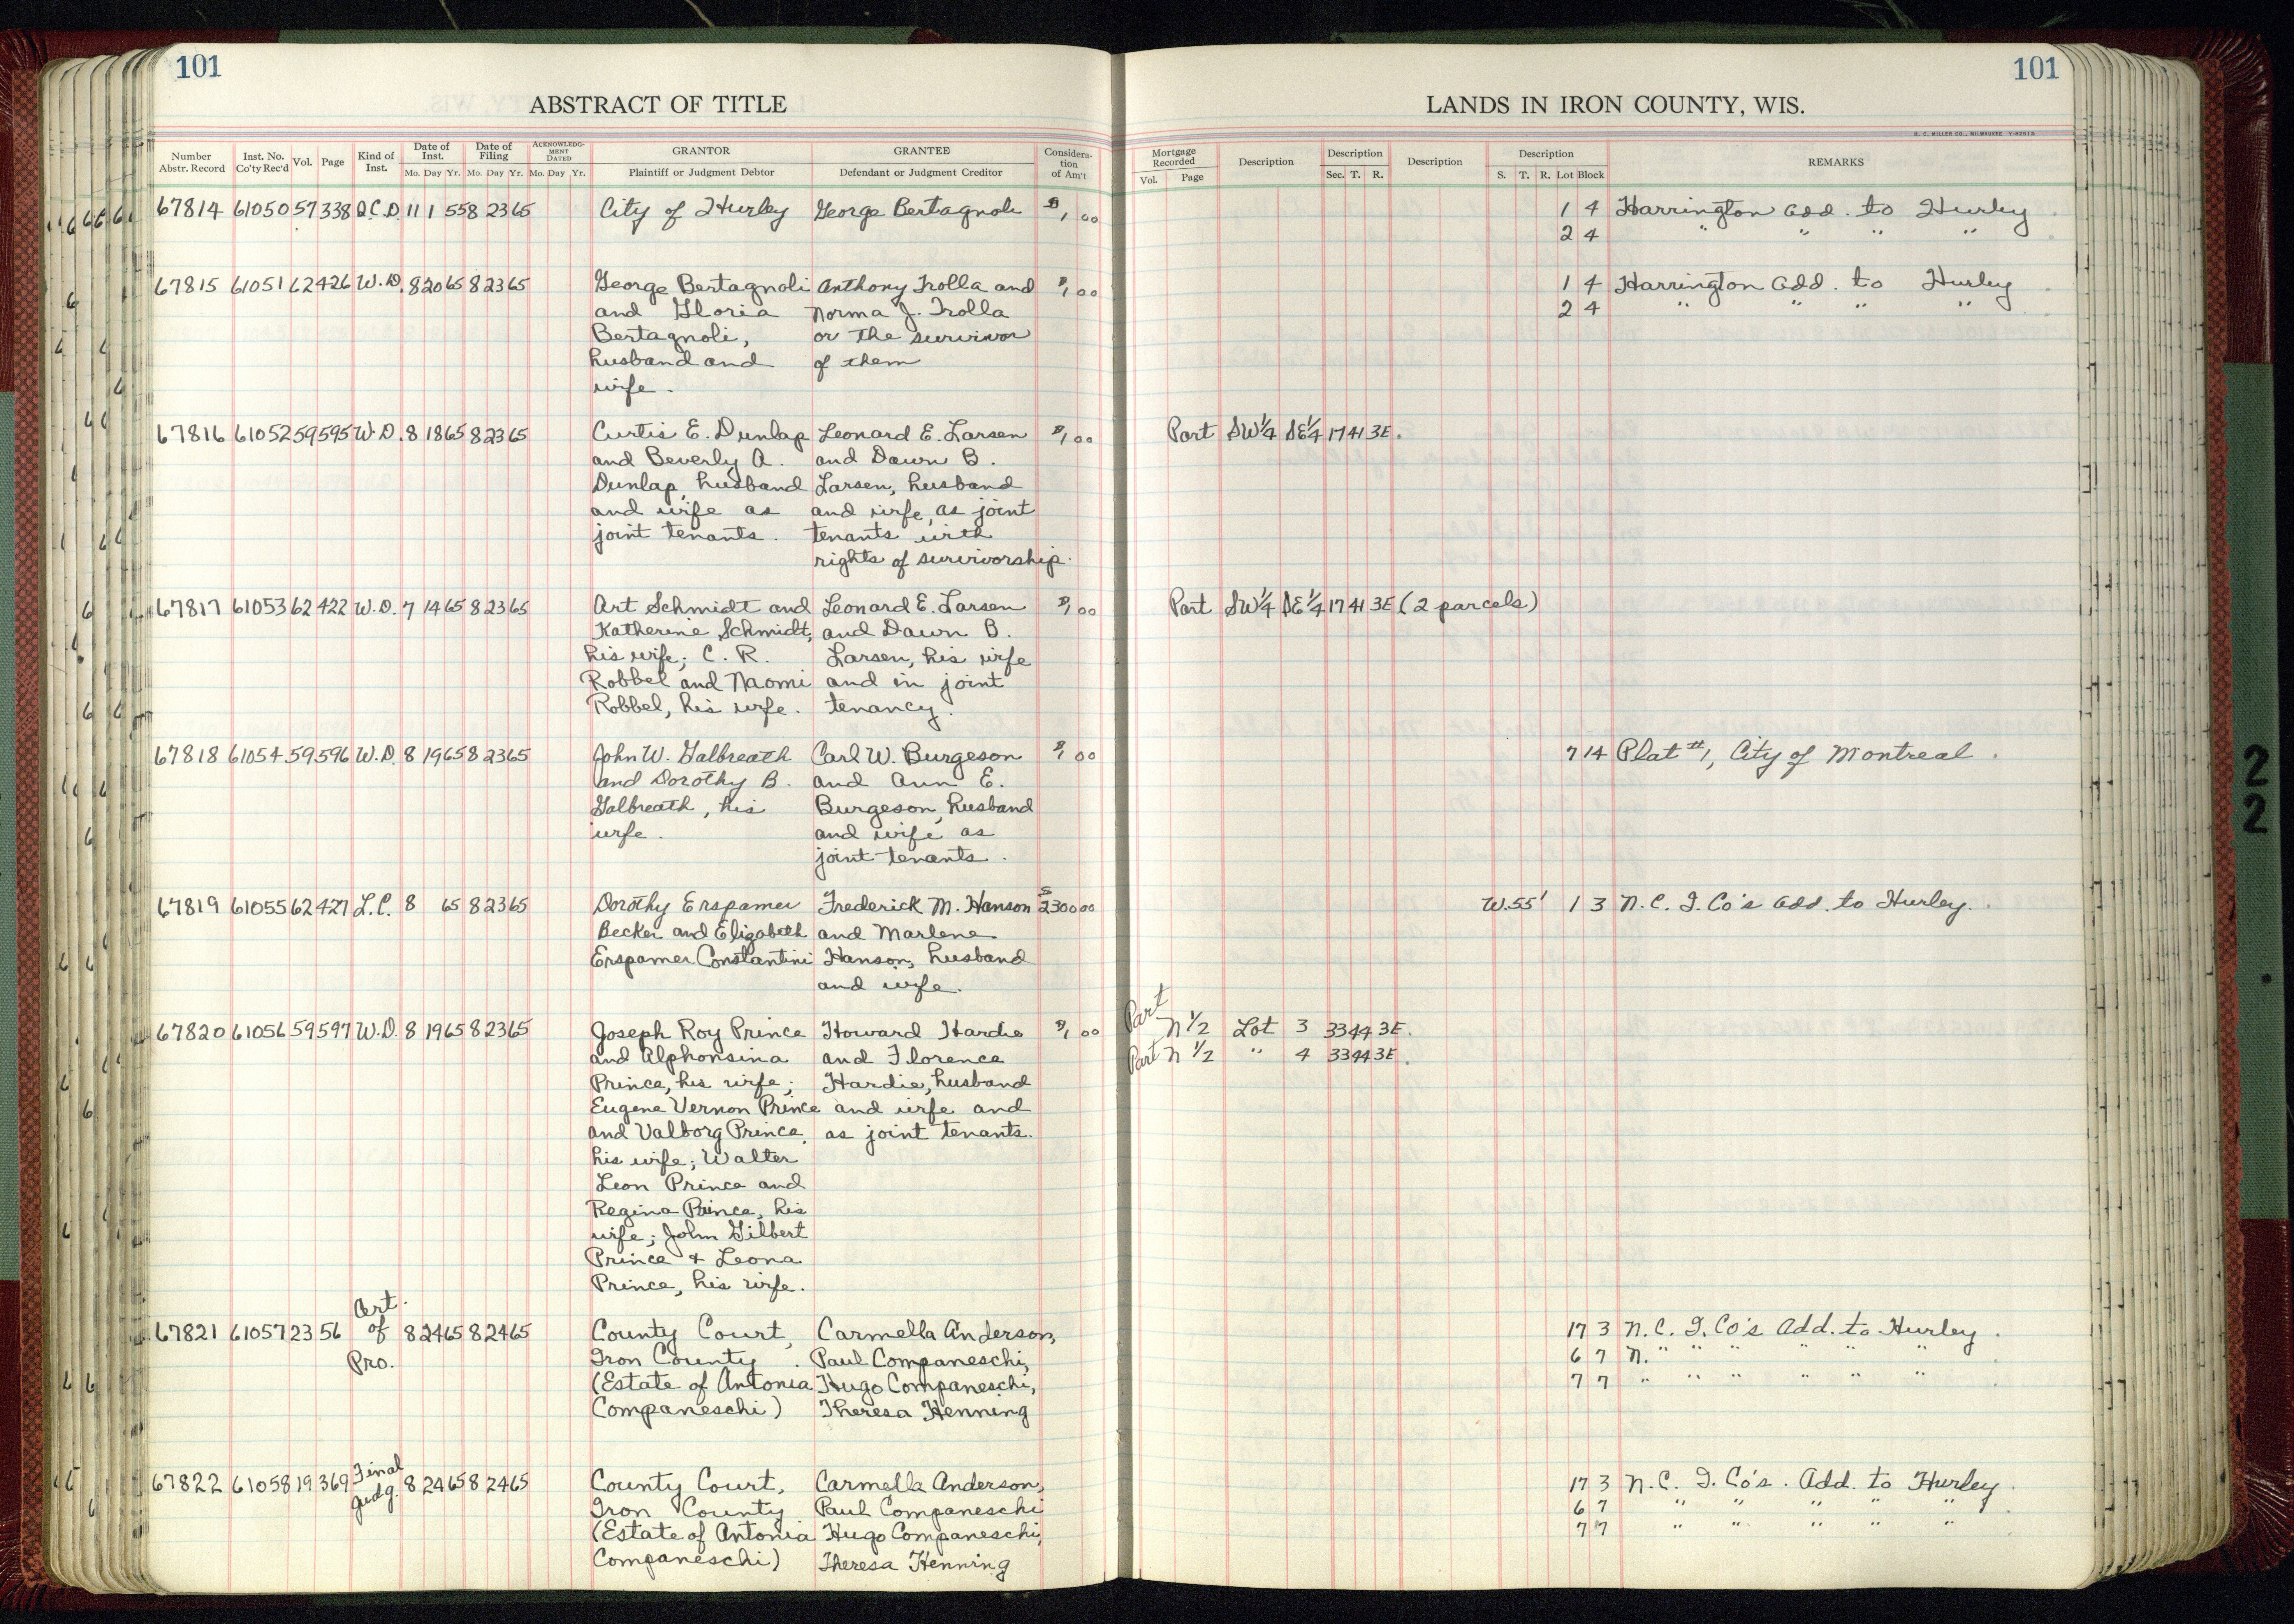 101
101
ABSTRACT OF TITLE
LANDS IN IRON COUNTY, WIS.
H. C. MILLER CO., MILWAUKEE
Number Abstr. Record Inst. No. Co'ty Rec'd Vol. Page Kind of Inst. Date of Inst. Mo. Day Yr. Date of Filing Mo. Day Yr. ACKNOWLEDGMENT DATED Mo. Day Yr. GRANTOR Plaintiff or Judgment Debtor GRANTEE Defendant or Judgment Creditor Consideration of Am't
Mortgage Recorded Vol. Page Description Description Sec. T. R. Description Description S. T. R. Lot Block REMARKS
67814 61050 57 338 Q.C.D. 11 1 55 8 23 65 City of Hurley George Bertagnoli $1,00 1 4 Harrington Add. to Hurley
2 4 " " " "
67815 61051 62 426 W.D. 8 20 65 8 23 65 George Bertagnoli Anthony Trolla and $1,00 1 4 Harrington Add. to Hurley
and Gloria Norma J. Trolla 2 4 " " " "
Bertagnoli, or the survivor
husband and of them
wife.
67816 61052 59 595 W.D. 8 18 65 8 23 65 Curtis E. Dunlap Leonard E. Larsen $1,00 Part SW¼ SE¼ 17 41 3E.
and Beverly A. and Dawn B.
Dunlap, husband Larsen, husband
and wife as and wife, as joint
joint tenants. tenants with
rights of survivorship.
67817 61053 62 422 W.D. 7 14 65 8 23 65 Art Schmidt and Leonard E. Larsen $1,00 Part SW¼ SE¼ 17 41 3E (2 parcels)
Katherine Schmidt, and Dawn B.
his wife; C. R. Larsen, his wife
Robbel and Naomi and in joint
Robbel, his wife. tenancy.
67818 61054 59 596 W.D. 8 19 65 8 23 65 John W. Galbreath Carl W. Burgeson $1,00 7 14 Plat #1, City of Montreal.
and Dorothy B. and Ann E.
Galbreath, his Burgeson, husband
wife. and wife as
joint tenants.
67819 61055 62 427 L.C. 8 65 8 23 65 Dorothy Erspamer Frederick M. Hanson $2300 00 W.55' 1 3 N.C.I.Co's Add. to Hurley.
Becker and Elizabeth and Marlene
Erspamer Constantini Hanson, husband
and wife.
67820 61056 59 597 W.D. 8 19 65 8 23 65 Joseph Roy Prince Howard Hardie $1,00 Part N½ Lot 3 33 44 3E.
and Alphonsina and Florence Part N½ " 4 33 44 3E.
Prince, his wife; Hardie, husband
Eugene Vernon Prince and wife and
and Valborg Prince, as joint tenants.
his wife; Walter
Leon Prince and
Regina Prince, his
wife; John Gilbert
Prince & Leona
Prince, his wife.
Cert.
67821 61057 23 56 of 8 24 65 8 24 65 County Court, Carmella Anderson, 17 3 N.C.I.Co's Add. to Hurley.
Pro. Iron County. Paul Companeschi, 6 7 N. " " " " " "
(Estate of Antonia Hugo Companeschi, 7 7 " " " " " "
Companeschi) Theresa Henning
67822 61058 19 369 Final Judg. 8 24 65 8 24 65 County Court, Carmella Anderson, 17 3 N.C. I.Co's. Add. to Hurley.
Iron County Paul Companeschi 6 7 " " " " "
(Estate of Antonia Hugo Companeschi, 7 7 " " " " "
Companeschi) Theresa Henning
2
2